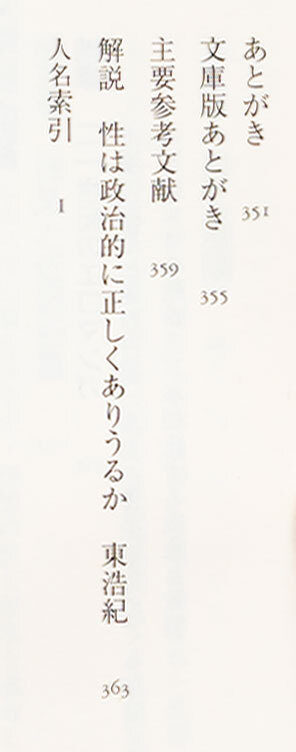 あとがき 351
文庫版あとがき 355
主要参考文献 359
解説 性は政治的に正しくありうるか 東浩紀 363
人名索引 1